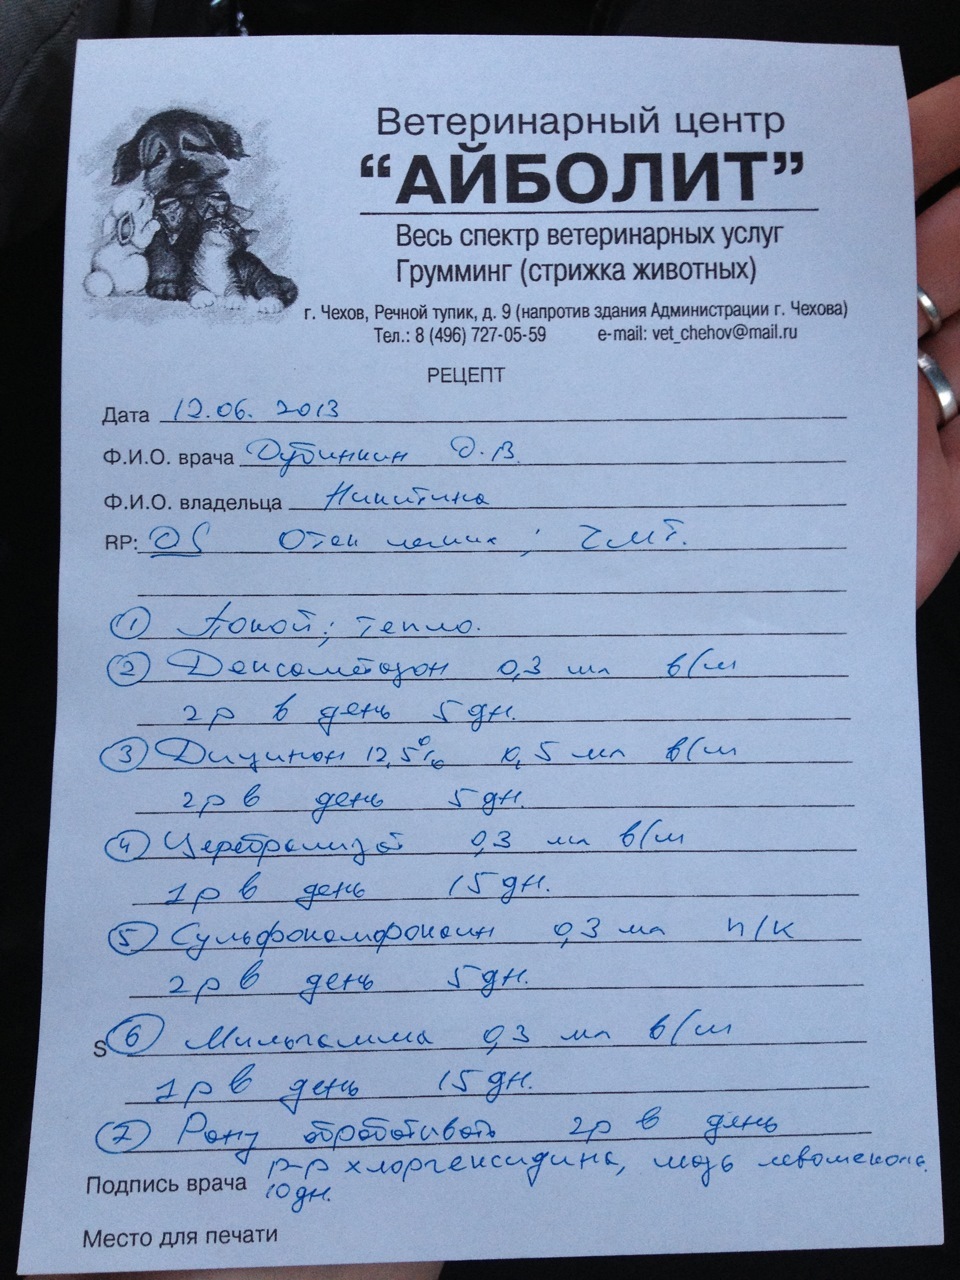 Ветеринарный центр
“АЙБОЛИТ”
Весь спектр ветеринарных услуг
Грумминг (стрижка животных)
г. Чехов, Речной тупик, д. 9 (напротив здания Администрации г. Чехова)
Тел.: 8 (496) 727-05-59 e-mail: vet_chehov@mail.ru
РЕЦЕПТ
Дата 12.06. 2013
Ф.И.О. врача Дубинкин Д.В.
Ф.И.О. владельца Никитина
RP: DS Отек легких; ЧМТ.
1 Покой; тепло.
2 Дексаметазон 0,3 мл в/м
2р в день 5 дн.
3 Дицинон 12,5% 0,5 мл в/м
2р в день 5 дн.
4 Церебролизат 0,3 мл в/м
1р в день 15 дн.
5 Сульфокамфокаин 0,3 мл п/к
2р в день 5 дн.
S 6 Мильгамма 0,3 мл в/м
1р в день 15 дн.
7 Рану обрабатывать 2р в день
р-р хлоргексидина, мазь левомеколь.
Подпись врача 10 дн.
Место для печати